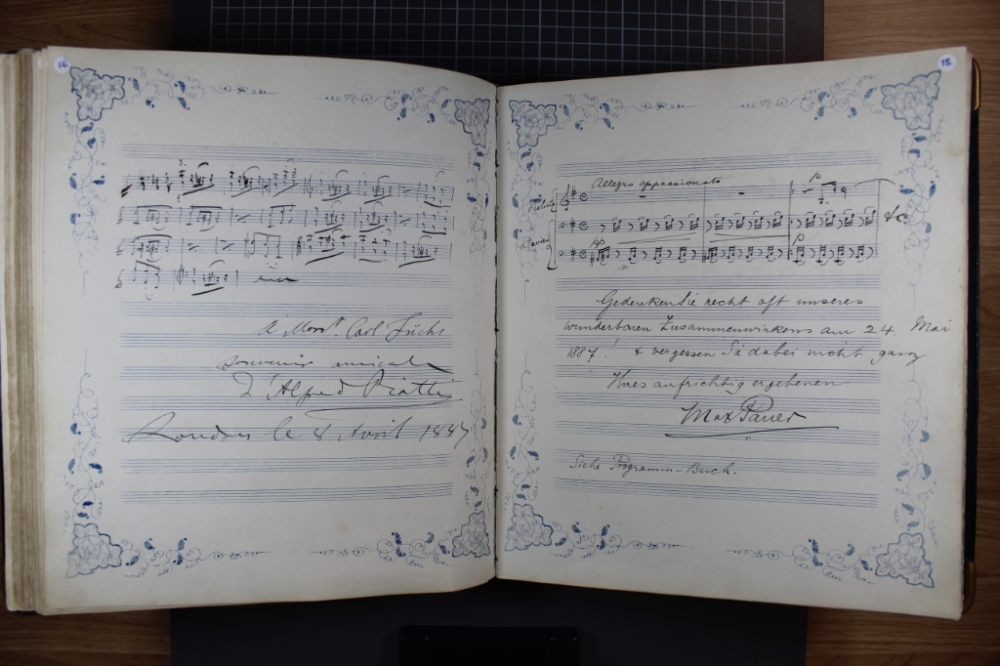 16
A Monsr. Carl Fuchs
souvenir musical
D'Alfred Piatti
Londres le 8 Avril 1887
18
Allegro appassionato
Violoncello
Clavier
pp
p
p
&c
Gedenken Sie recht oft unseres
wunderbaren Zusammenwirkens am 24. Mai
1887! & vergessen Sie dabei nicht ganz
Ihres aufrichtig ergebenen
Max Pauer
Siehe Programm-Buch.